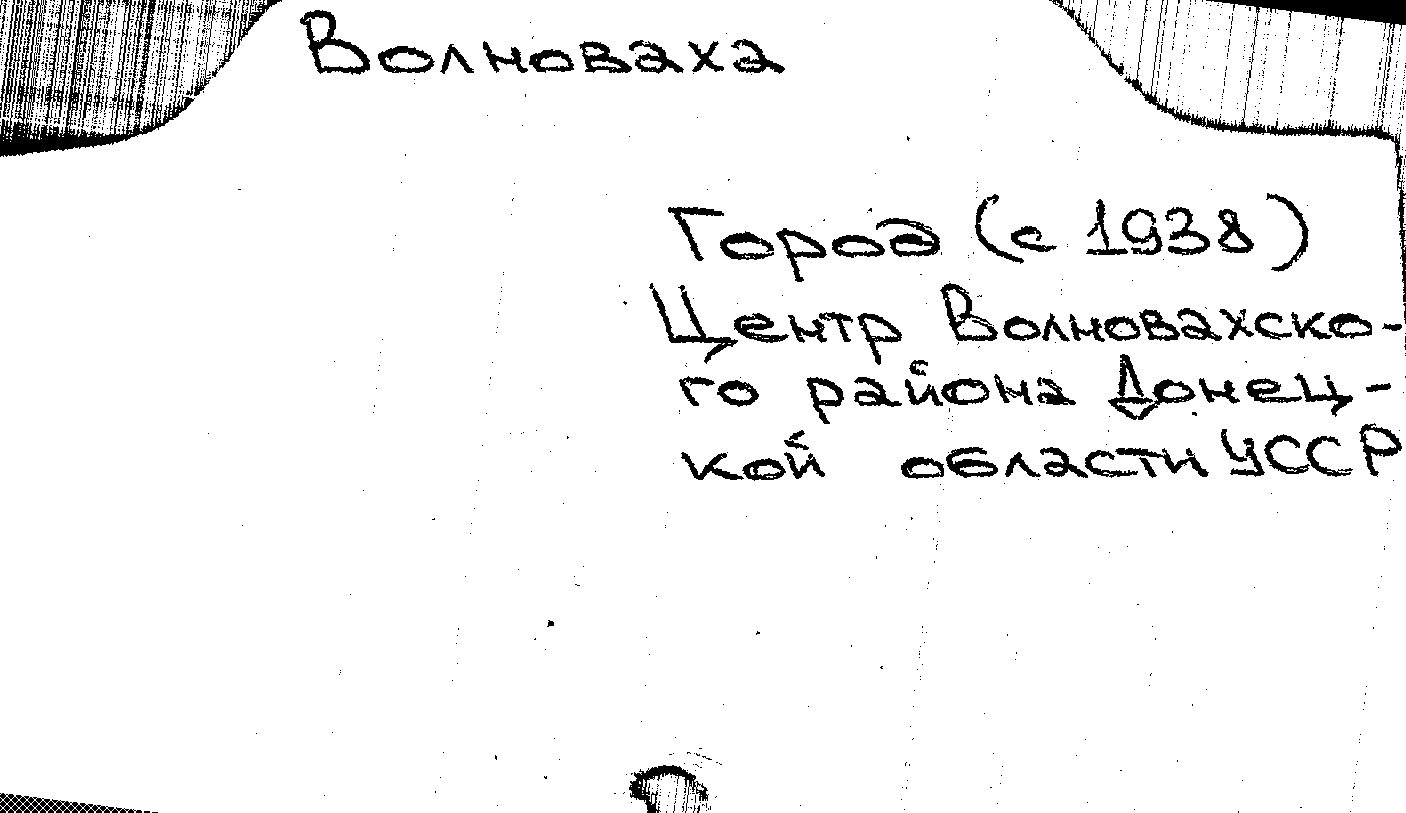 Волноваха
Город (с 1938)
Центр Волновахско-
го района Донец-
кой области УССР